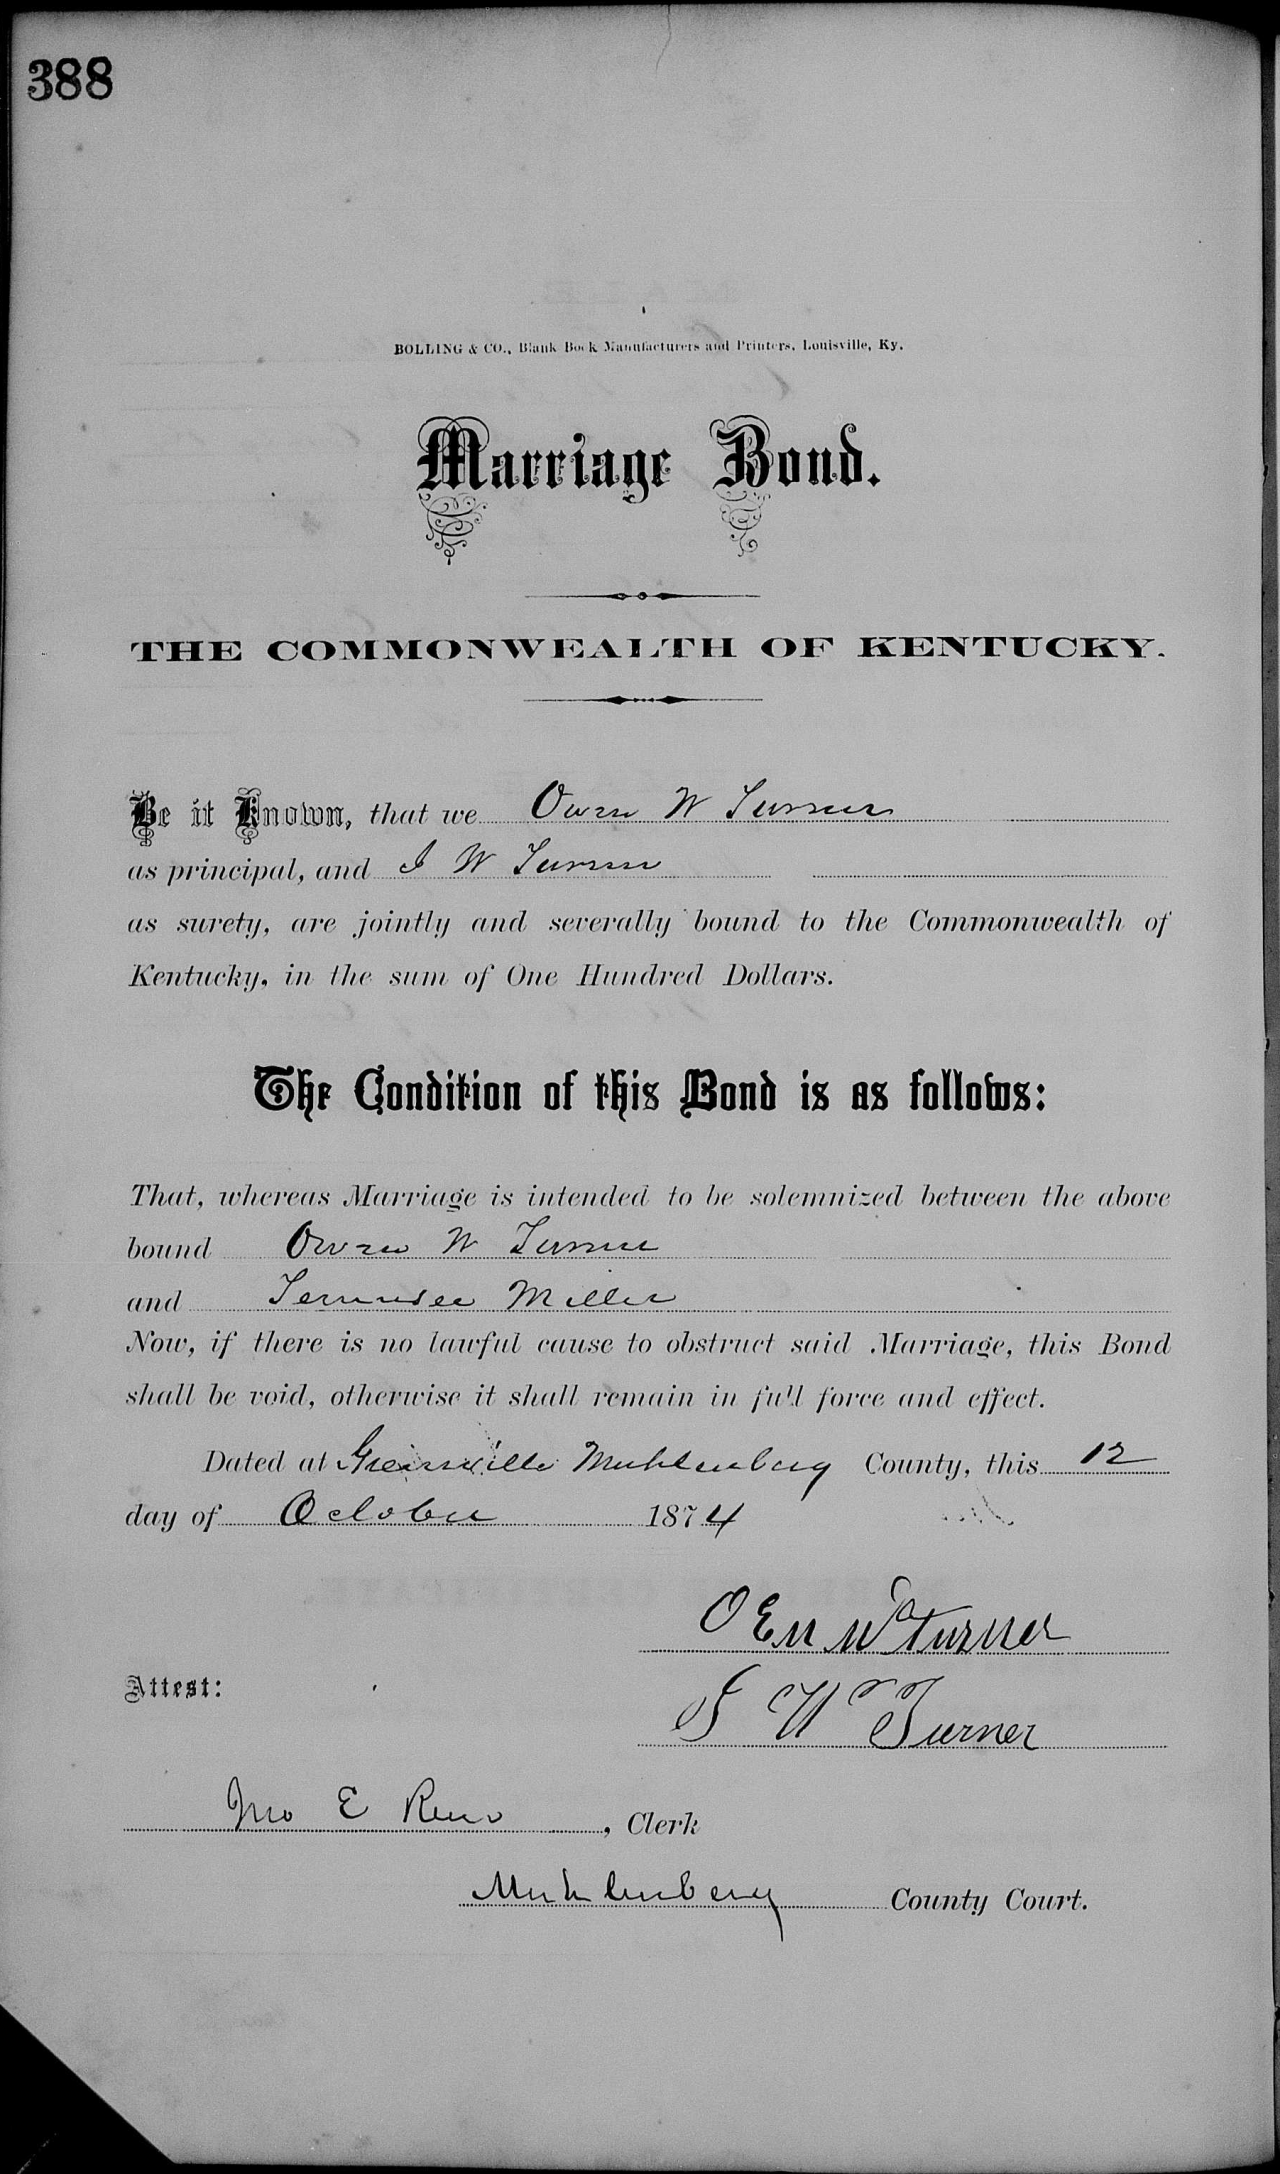 388
BOLLING & CO., Blank Book Manufacturers and Printers, Louisville, Ky.
Marriage Bond.
THE COMMONWEALTH OF KENTUCKY.
Be it Known, that we Owen W Turner
as principal, and J W Turner
as surety, are jointly and severally bound to the Commonwealth of
Kentucky, in the sum of One Hundred Dollars.
The Condition of this Bond is as follows:
That, whereas Marriage is intended to be solemnized between the above
bound Owen W Turner
and Tennessee Miller
Now, if there is no lawful cause to obstruct said Marriage, this Bond
shall be void, otherwise it shall remain in full force and effect.
Dated at Greenville Muhlenberg County, this 12
day of October 1874
OEn W Turner
Attest:
J W Turner
Jno E Reno, Clerk
Muhlenberg County Court.